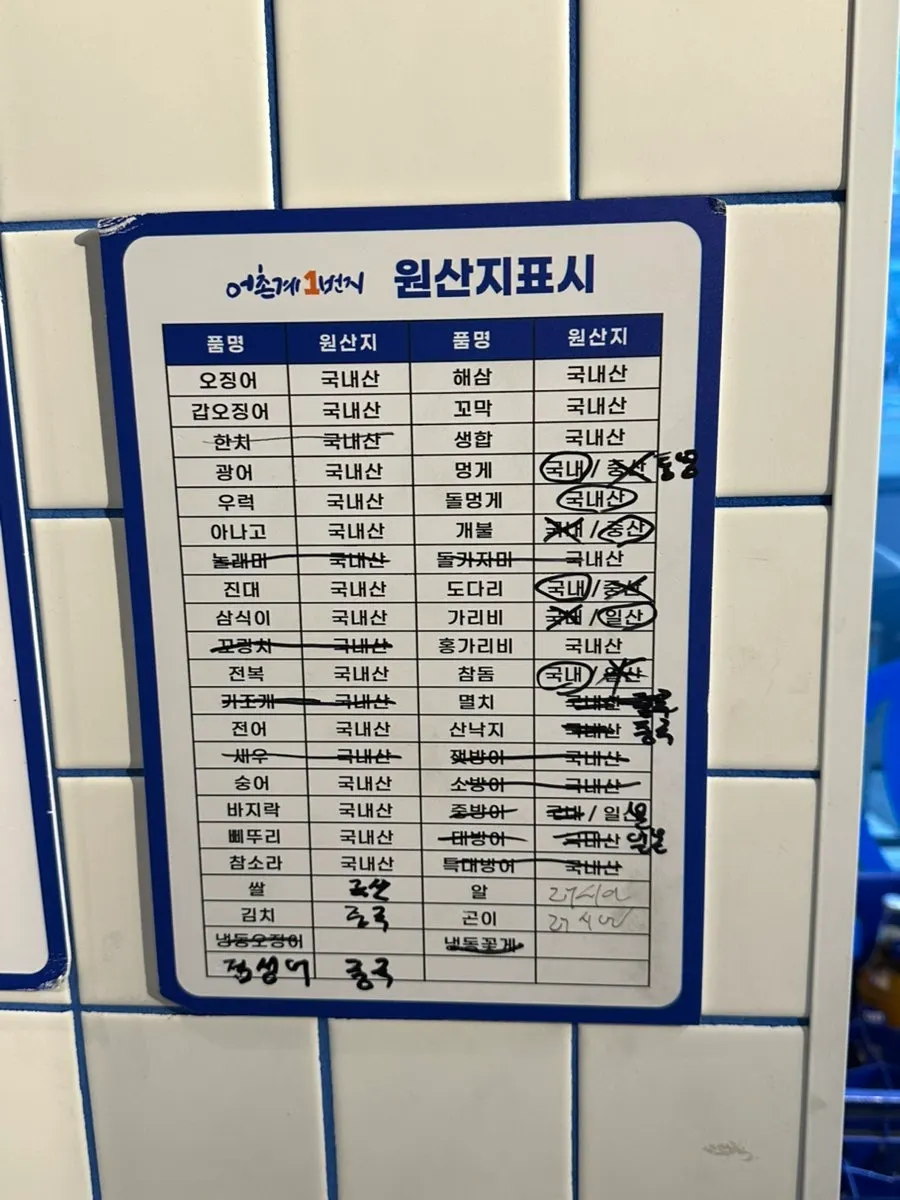 어촌계1번지 원산지표시
품명 원산지 품명 원산지
오징어 국내산 해삼 국내산
갑오징어 국내산 꼬막 국내산
한치 국내산 생합 국내산
광어 국내산 멍게 국내 / 중산 통영
우럭 국내산 돌멍게 국내산
아나고 국내산 개불 국내 / 중산
놀래미 국내산 돌가자미 국내산
진대 국내산 도다리 국내 / 중산
삼식이 국내산 가리비 국내 / 일산
꼬랑치 국내산 홍가리비 국내산
전복 국내산 참돔 국내 / 일산
키조개 국내산 멸치 국내산
전어 국내산 산낙지 국내산 중국
새우 국내산 잿방어 국내산
숭어 국내산 소방어 국내산
바지락 국내산 중방어 국내 / 일산
삐뚜리 국내산 대방어 국내산 일본
참소라 국내산 특대방어 국내산
쌀 국산 알 러시아
김치 중국 곤이 러시아
냉동오징어 냉동꽃게
점성어 중국